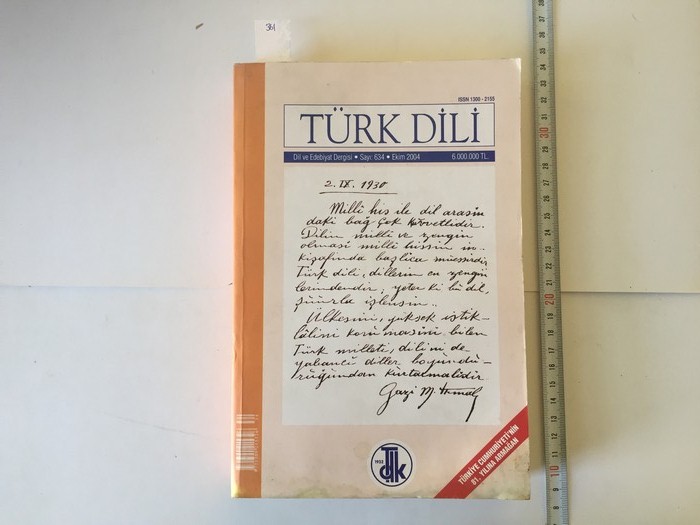 361
ISSN 1300 - 2155
TÜRK DİLİ
Dil ve Edebiyat Dergisi • Sayı: 634 • Ekim 2004 6.000.000 TL.
2. IX. 1930
Millî his ile dil arasın
daki bağ çok kuvvetlidir.
Dilin millî ve zengin
olması millî hissin in-
kişafında başlıca müessirdir.
Türk dili, dillerin en zengin
lerindendir; yeter ki bu dil,
şuurla işlensin..
Ülkesini, yüksek istik-
lâlini korumasını bilen
Türk milleti, dilini de
yabancı diller boyundu-
ruğundan kurtarmalıdır
Gazi M. Kemal
TÜRKİYE CUMHURİYETİ'NİN
81. YILINA ARMAĞAN
1932
TDK